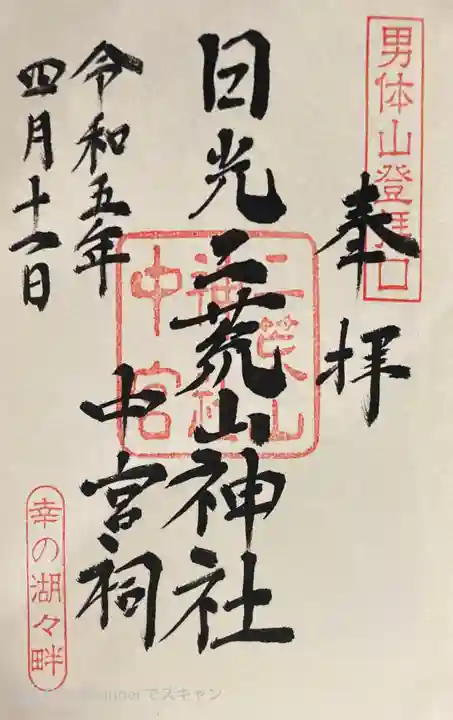 男体山登拝口
奉拝
日光二荒山神社
中宮祠
二荒山
神社
中宮
令和五年
四月十一日
幸の湖々畔
でスキャン